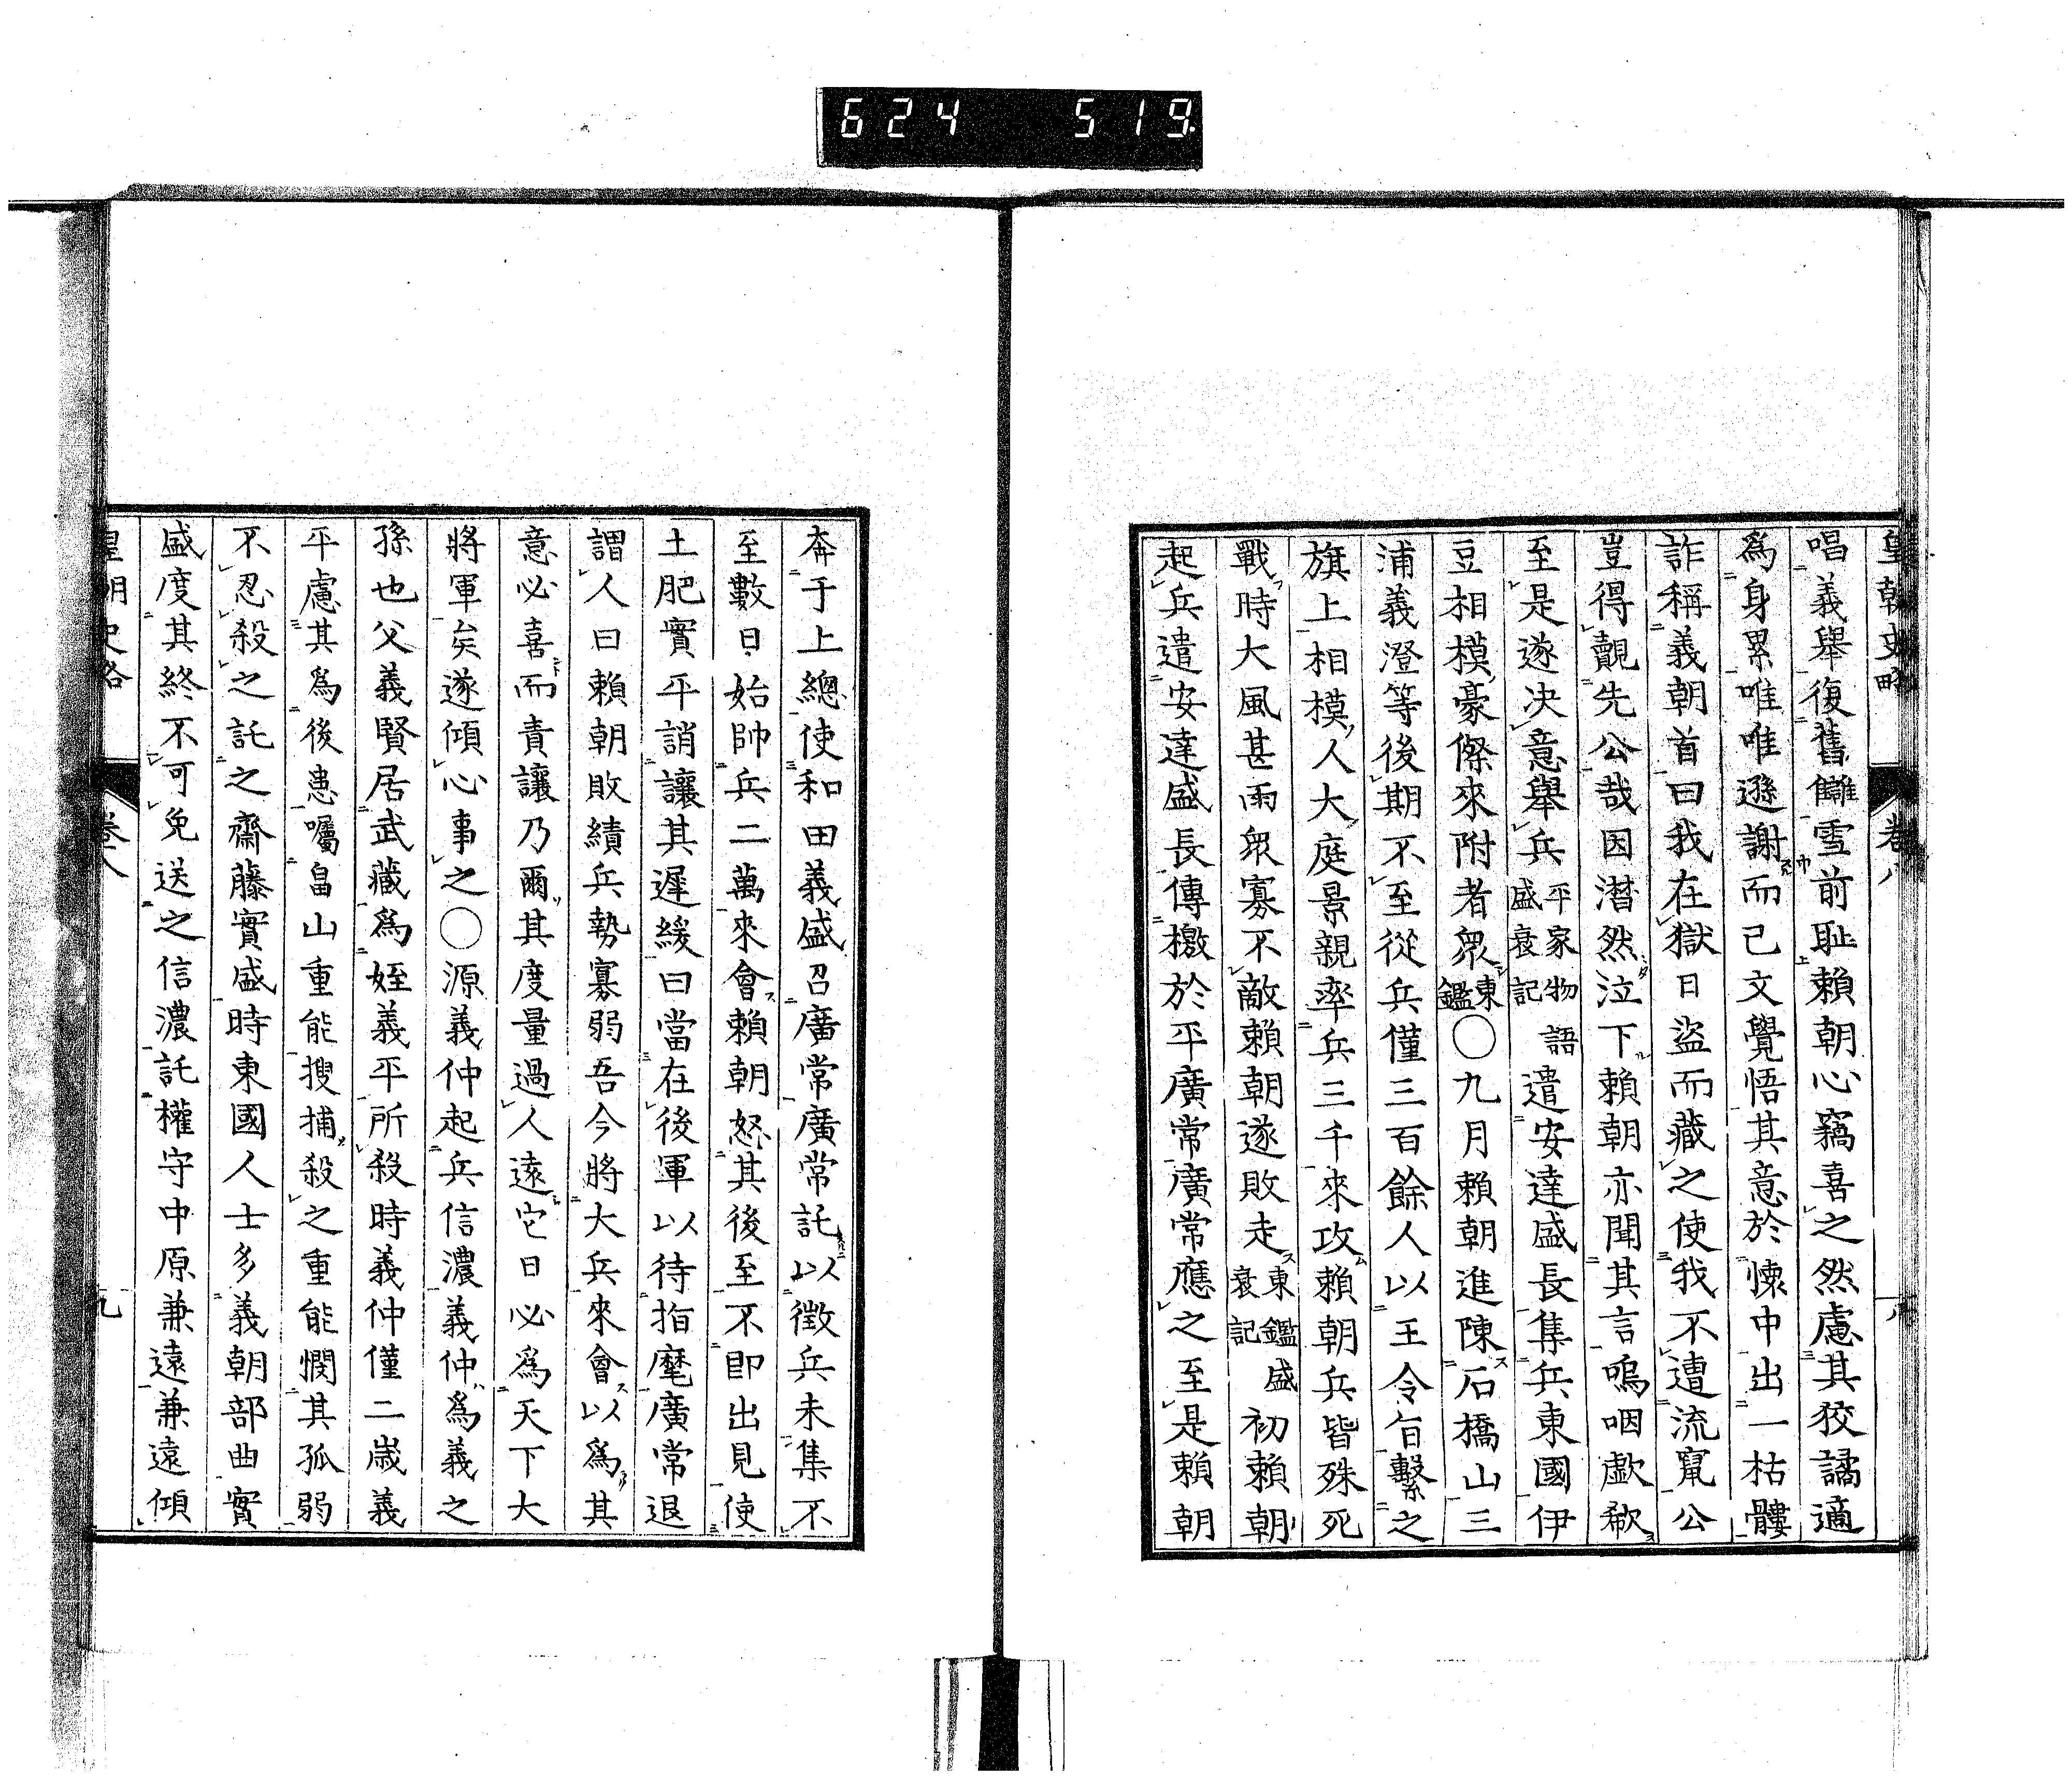 624 519
皇朝史略 卷八 八
唱義舉復舊讎雪前耻賴朝心竊喜之然慮其狡譎適
爲身累唯唯遜謝而已文覺悟其意於懷中出一枯髏
詐稱義朝首曰我在獄日盜而藏之使我不遭流竄公
豈得覩先公哉因潛然泣下賴朝亦聞其言嗚咽歔欷
至是遂决意舉兵平家物語盛衰記遣安達盛長集兵東國伊
豆相模豪傑來附者衆東鑑〇九月賴朝進陳石橋山三
浦義澄等後期不至從兵僅三百餘人以王令旨繫之
旗上相模人大庭景親率兵三千來攻賴朝兵皆殊死
戰時大風甚雨衆寡不敵賴朝遂敗走東鑑盛衰記初賴朝
起兵遣安達盛長傳檄於平廣常廣常應之至是賴朝
奔于上總使和田義盛召廣常廣常託以徵兵未集不
至數日始帥兵二萬來會賴朝怒其後至不卽出見使
土肥實平誚讓其遲緩曰當在後軍以待指麾廣常退
謂人曰賴朝敗績兵勢寡弱吾今將大兵來會以爲其
意必喜而責讓乃爾其度量過人遠它日必爲天下大
將軍矣遂傾心事之〇源義仲起兵信濃義仲爲義之
孫也父義賢居武藏爲姪義平所殺時義仲僅二歲義
平慮其爲後患囑畠山重能搜捕殺之重能憫其孤弱
不忍殺之託之齋藤實盛時東國人士多義朝部曲實
盛度其終不可免送之信濃託權守中原兼遠兼遠傾
皇朝史略 卷八 九